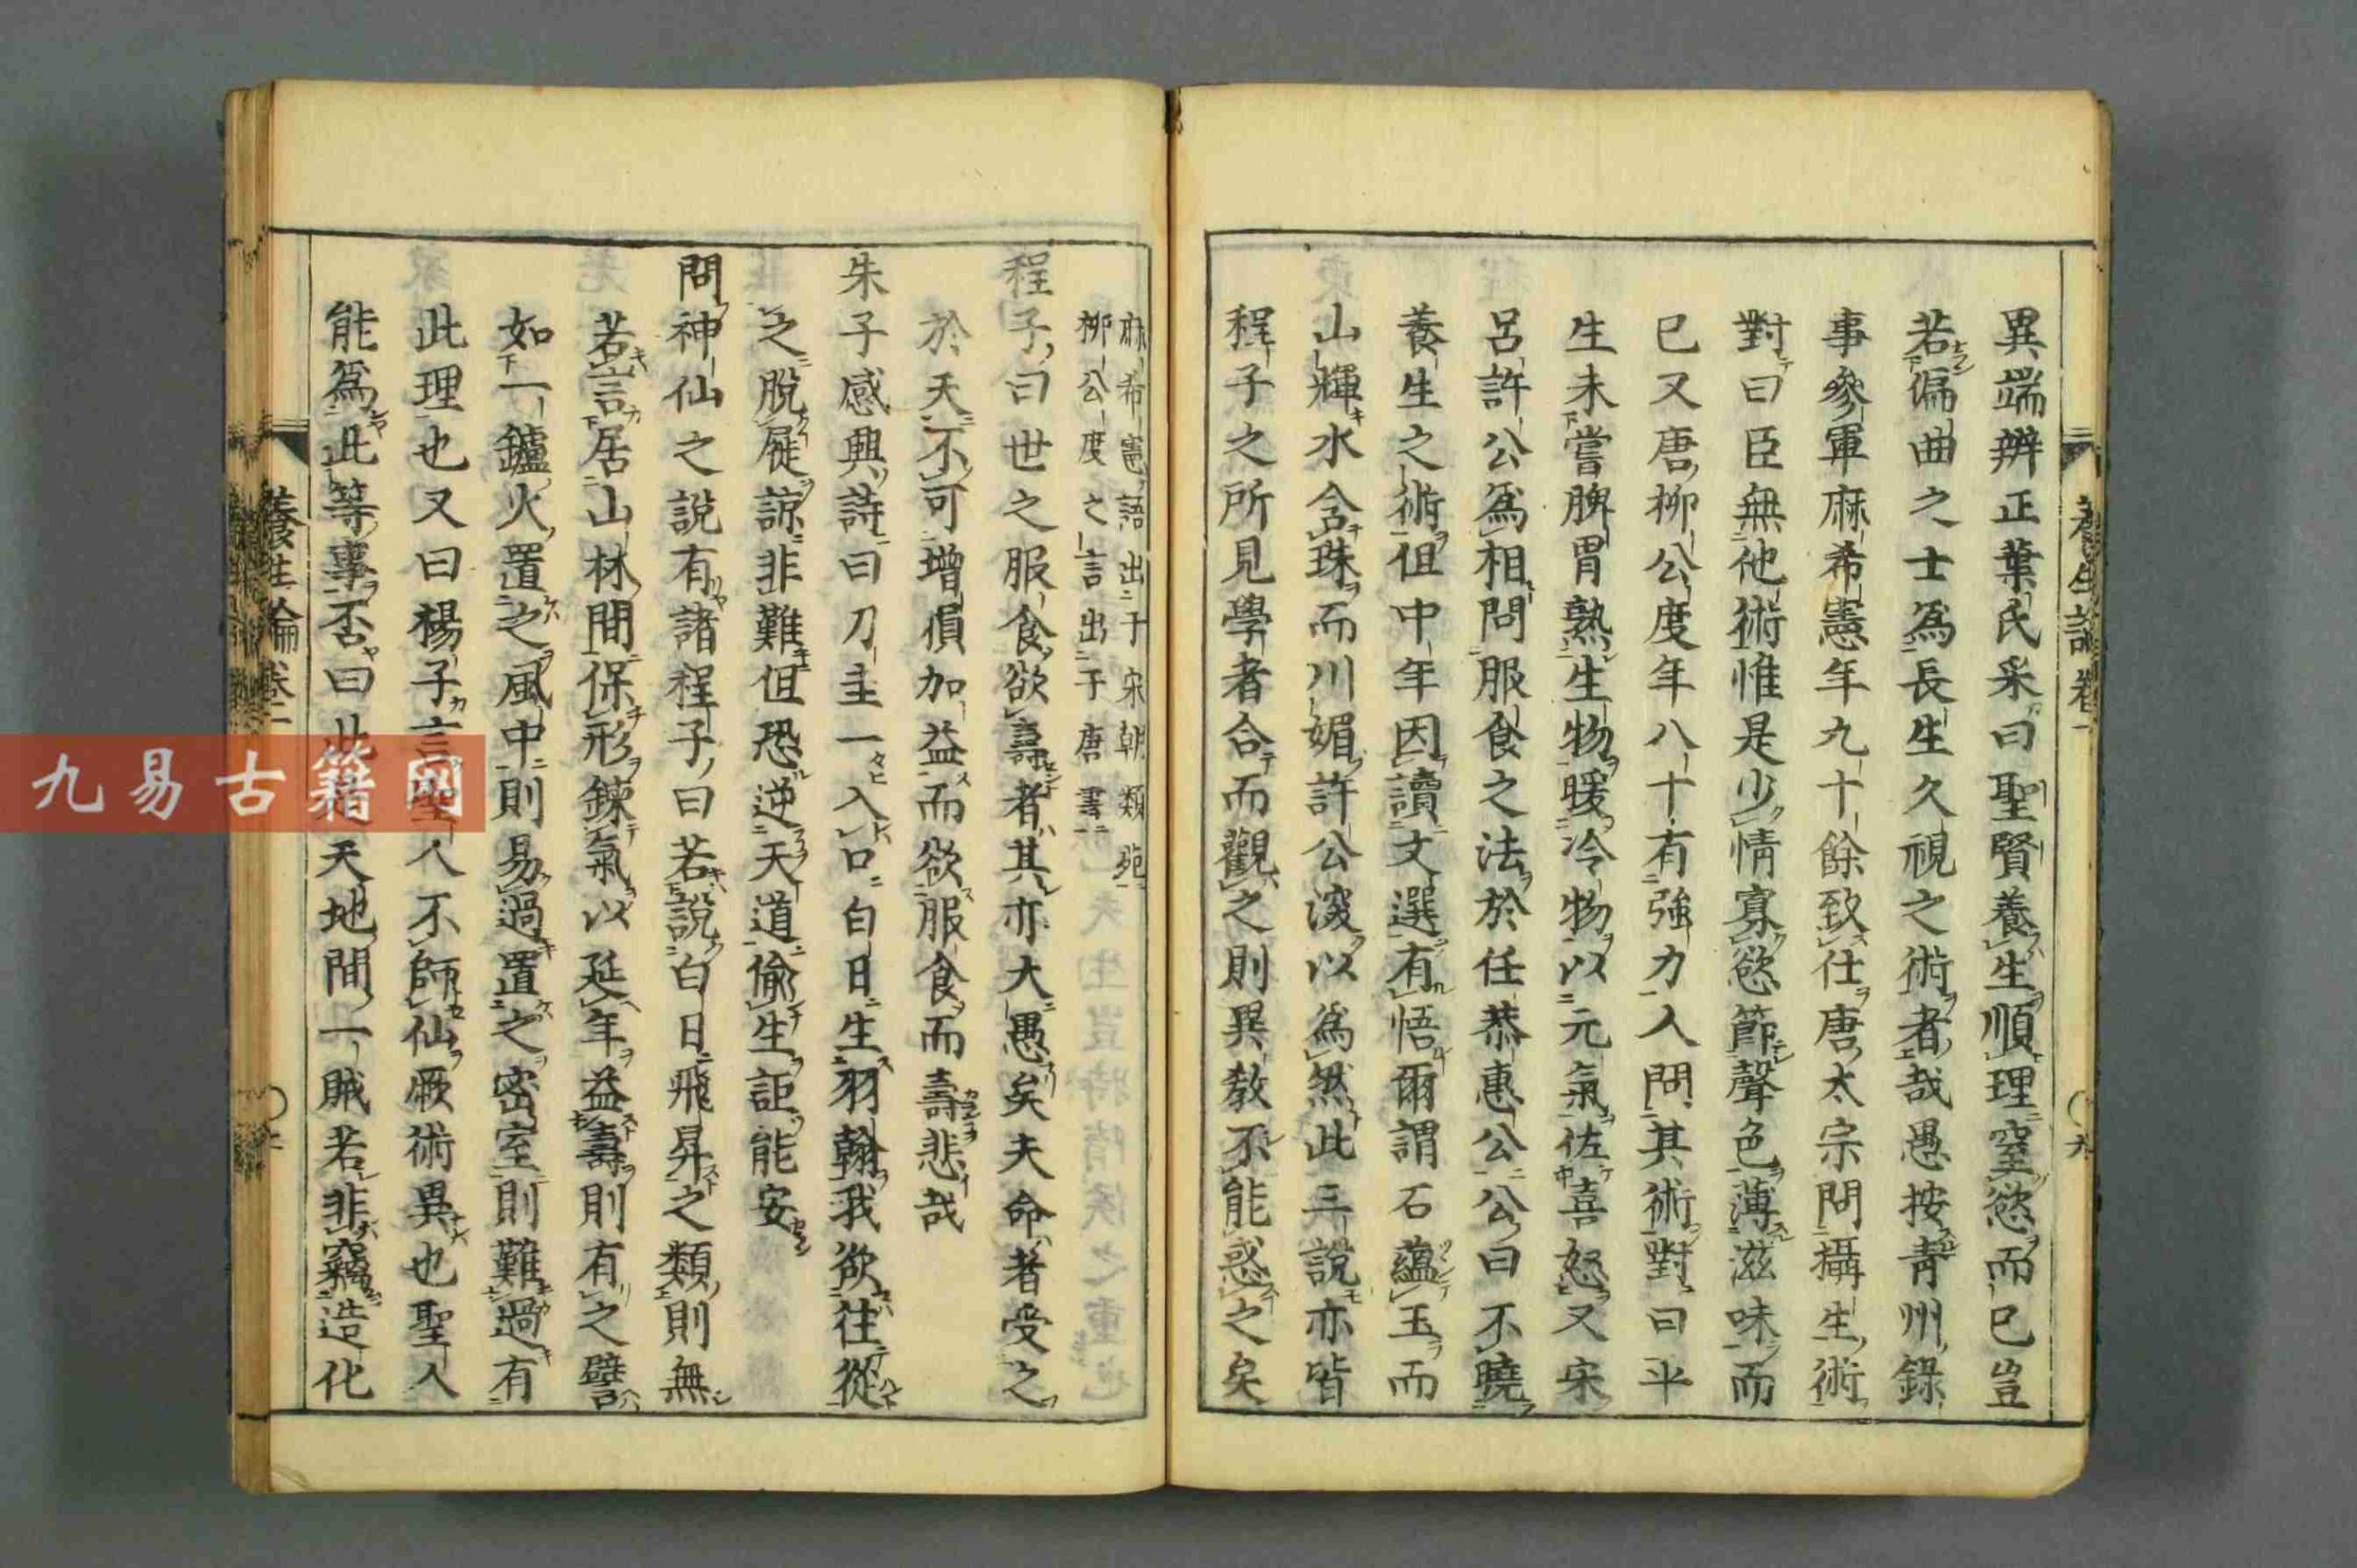 異端辨正葉氏采曰聖賢養生順理窒慾而已豈
若偏曲之士為長生久視之術者哉愚按青州錄
事參軍麻希憲年九十餘致仕唐太宗問攝生術
對曰臣無他術惟是少情寡慾節聲色薄滋味而
已又唐柳公度年八十有強力人問其術對曰平
生未嘗脾胃熟生物暖冷物以元氣佐喜怒又宋
呂許公為相問服食之法於任恭惠公公曰不曉
養生之術但中年因讀文選有悟爾謂石蘊玉而
山輝水含珠而川媚許公深以為然此三說亦皆
程子之所見學者合而觀之則異教不能惑之矣
養生論 卷二
麻希憲語出于宋朝類苑
柳公度之言出于唐書
程子曰世之服食欲壽者其亦大愚矣夫命者受之
於天不可增損加益而欲服食而壽悲哉
朱子感興詩曰刀圭一入口白日生羽翰我欲往從
之脫屣諒非難但恐逆天道偷生詎能安
問神仙之說有諸程子曰若說白日飛昇之類則無
若言居山林間保形鍊氣以延年益壽則有之譬
如一鑪火置之風中則易過置之密室則難過有
此理也又曰楊子言聖人不師仙厥術異也聖人
能為此等事否曰此是天地間一賊若非竊造化
養生論 卷二
九易古籍网